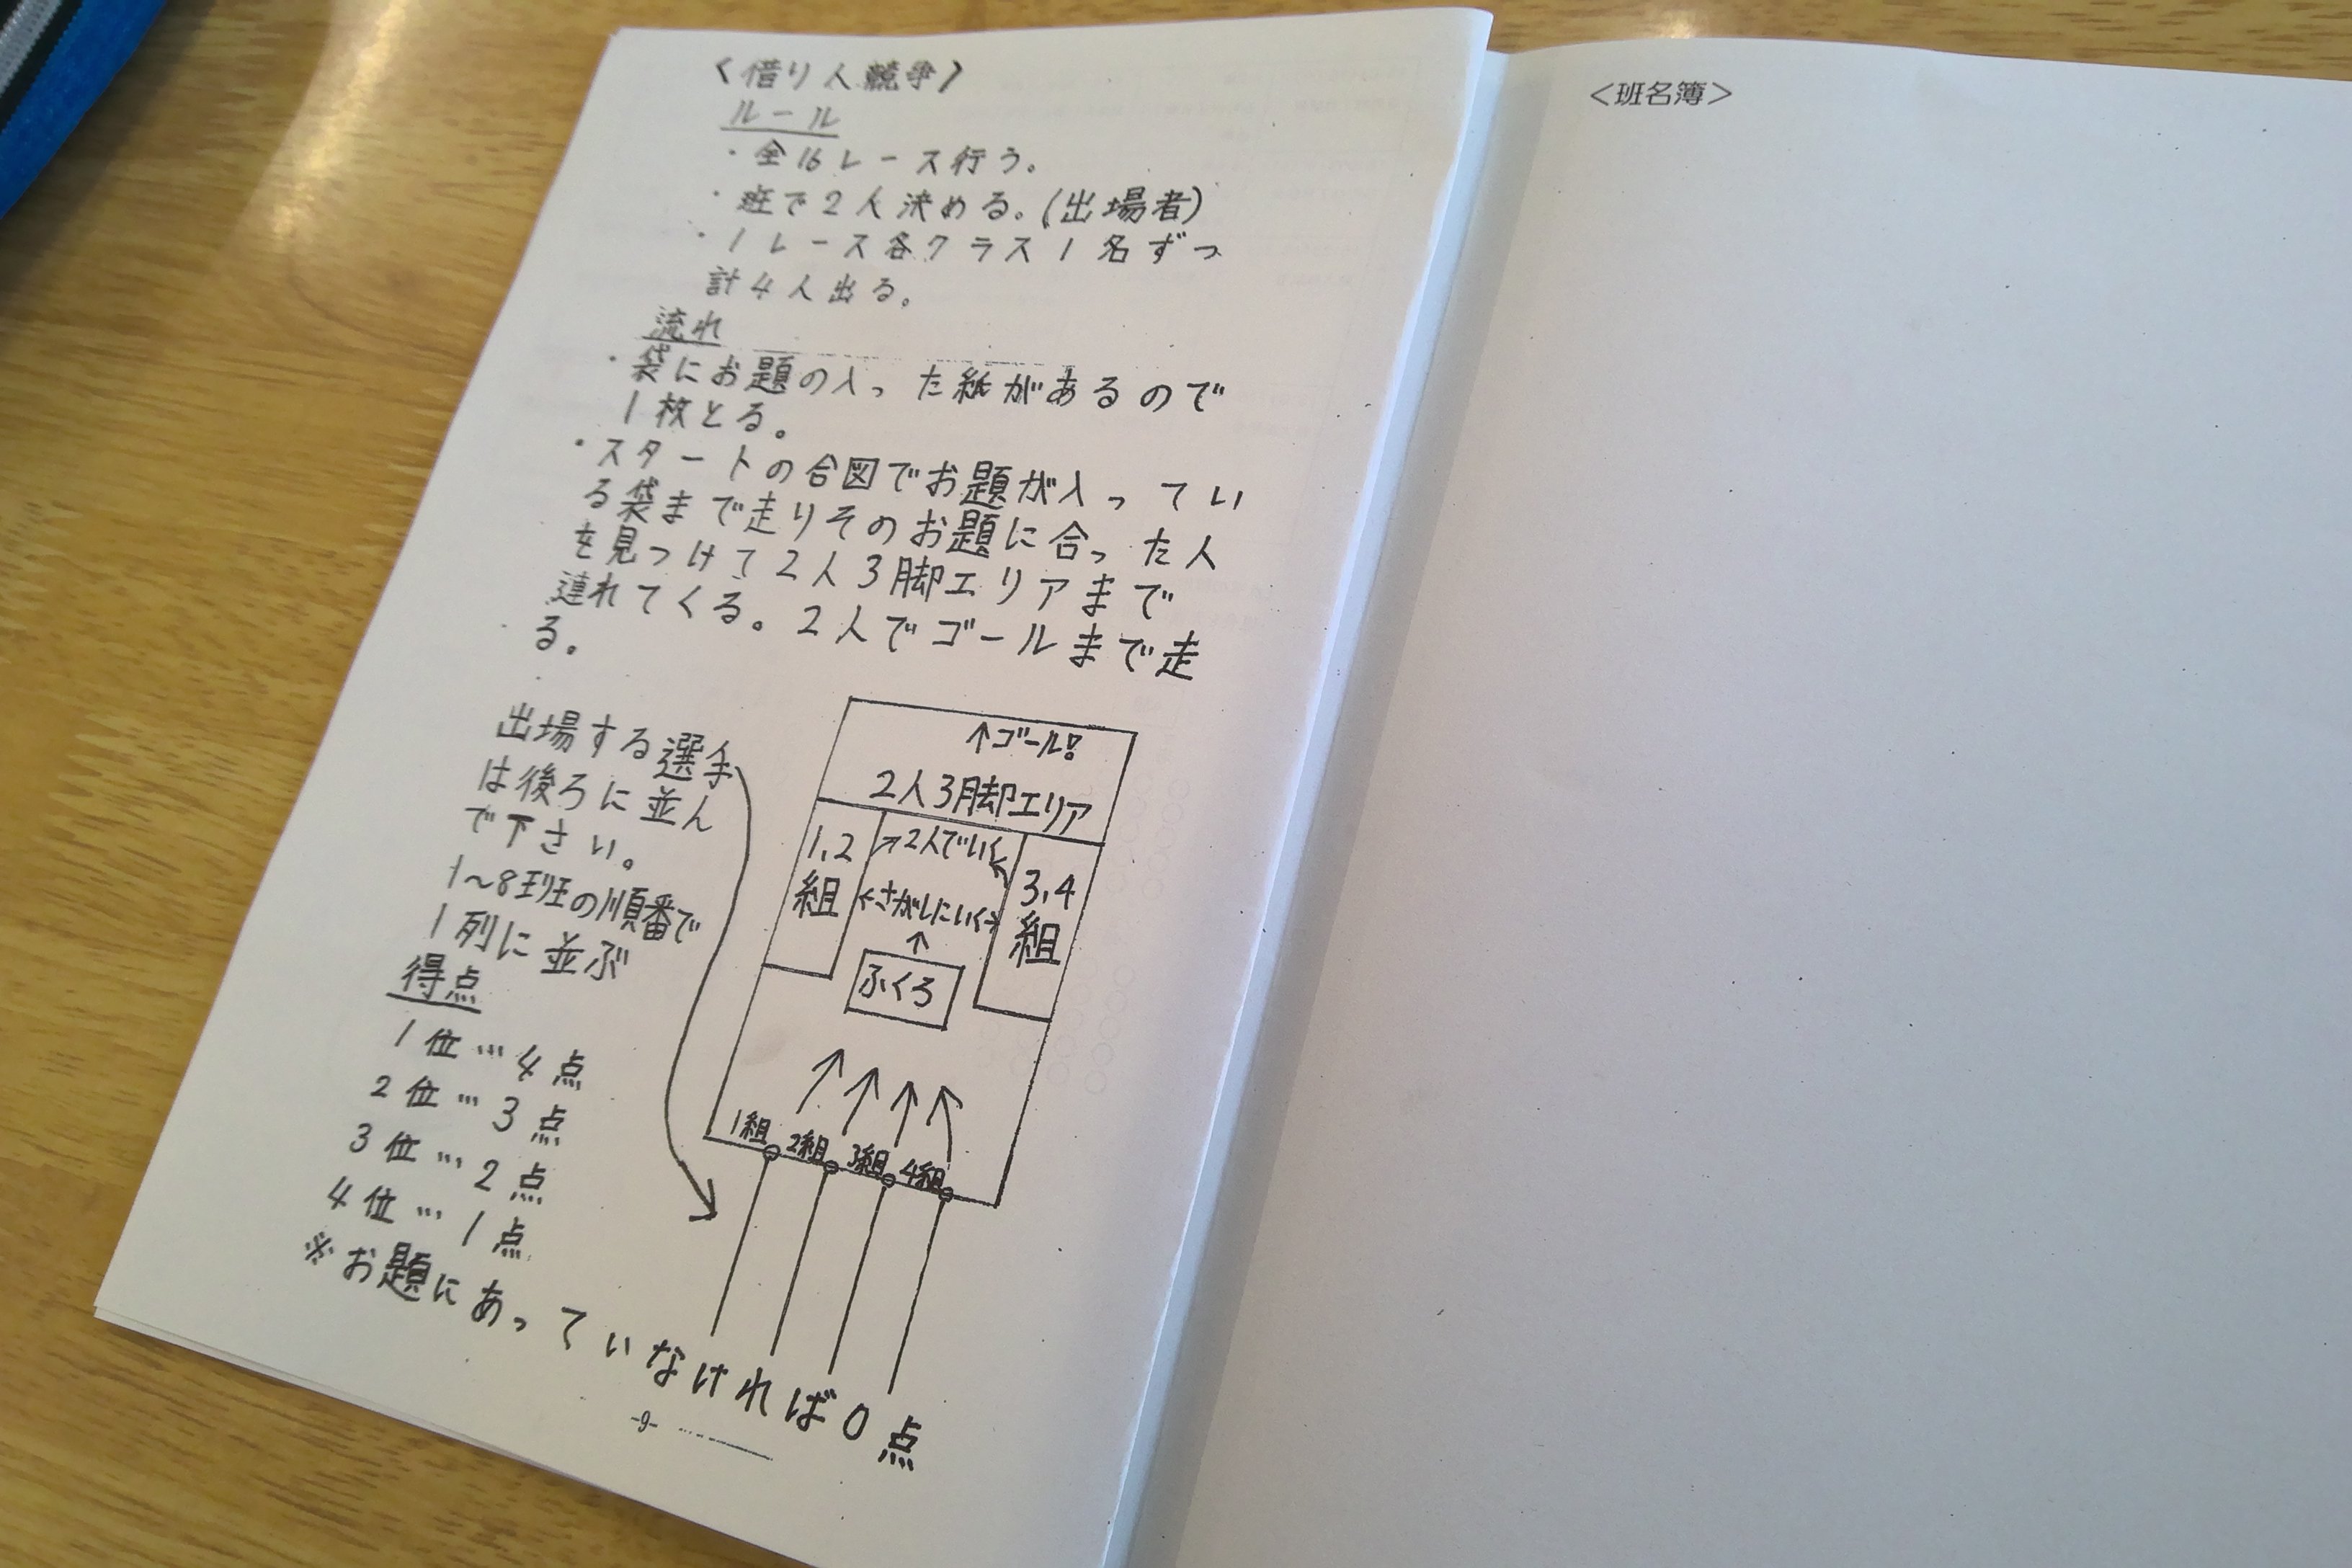 〈借り人競争〉
ルール
・全16レース行う。
・班で2人決める。(出場者)
・1レース各クラス1名ずつ
計4人出る。
流れ
・袋にお題の入った紙があるので
1枚とる。
・スタートの合図でお題が入ってい
る袋まで走りそのお題に合った人
を見つけて2人3脚エリアまで
連れてくる。2人でゴールまで走
る。
出場する選手
は後ろに並ん
で下さい。
1～8班の順番で
1列に並ぶ
↑ゴール!
2人3脚エリア
1,2
組
↗2人でいく↖
←さがしにいく→
↑
ふくろ
3,4
組
1組 2組 3組 4組
得点
1位…4点
2位…3点
3位…2点
4位…1点
※お題にあっていなければ0点
-9-
＜班名簿＞